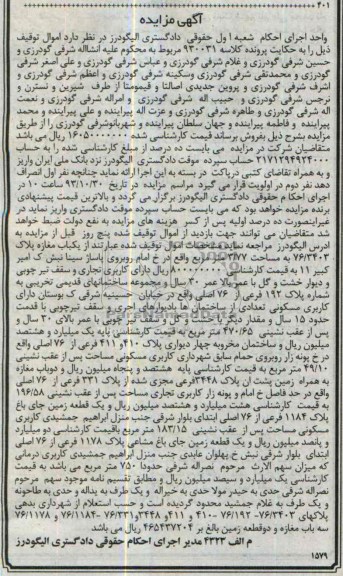 ۴۰۱
آگهی مزایده
واحد اجرای احکام شعبه اول حقوقی دادگستری الیگودرز در نظر دارد اموال توقیف
ذیل را به حکایت پرونده کلاسه ۹۳۰۰۳۱ مربوط به محکوم علیه انشااله شرفی گودرزی و
حسین شرفی گودرزی و غلام شرفی گودرزی و عباس شرفی گودرزی و علی اصغر شرفی
گودرزی و محمدتقی شرفی گودرزی وسکینه شرفی گودرزی و اعظم شرفی گودرزی و
اشرف شرفی گودرزی و پروین جدیدی اصالتا و قیمومتا از طرف شیرین و نسترن و
نرجس شرفی گودرزی و حبیب اله شرفی گودرزی و امراله شرفی گودرزی و نعمت
اله شرفی گودرزی و طاهره شرفی گودرزی و عزت اله پیراینده و علی پیراینده و محمد
پیراینده و فاطمه پیراینده و جهان سلطان پیراینده و شهربانوشرفی گودرزی را از طریق
مزایده بشرح ذیل بفروش برساند قیمت کارشناسی شده ۱۶۰۵۰۰۰۰۰۰۰ ریال می باشد
متقاضیان شرکت در مزایده می بایست ده درصد از مبلغ کارشناسی شده را به حساب
۲۱۷۱۲۹۴۹۲۴۰۰۰ حساب سپرده موقت دادگستری الیگودرز نزد بانک ملی ایران واریز
و به همراه تقاضای کتبی درپاکت در بسته به این اجرا ارائه نماید چنانچه نفر اول انصراف
دهد نفر دوم در اولویت قرار می گیرد مراسم مزایده در تاریخ ۹۳/۱۰/۳۰ ساعت ۱۰ در
اجرای احکام دادگستری الیگودرز برگزار می گردد و بالاترین قیمت پیشنهادی
برنده مزایده خواهد بود که می بایست حساب سپرده موقت دادگستری واریز نماید در
غیراینصورت ده درصد اولیه پس از کسر هزینه های مزایده به نفع دولت ضبط خواهد
شد متقاضیان می توانند جهت بازدید از اموال توقیف شده پنج روز قبل از مزایده به
آدرس الیگودرز مراجعه نمایند مشخصات اموال توقیف شده عبارتند از یکباب مغازه پلاک
۷۶/۳۴۰۳ به مساحت ۳/۷۷ متر مربع واقع در خ امام روبروی پاساژ سینا نبش ک امیر
کبیر ۱۱ به قیمت کارشناسی ۸۰۰۰۰۰۰۰۰ ریال دارای کاربری تجاری و سقف تیر چوبی
و دیوار خشت و گل با عمر بالا عمر ۳۰ سال و مجموعه ساختمانهای قدیمی تخریبی به
شماره پلاک ۱۹۲ فرعی از ۷۶ اصلی واقع در خیابان حسینیه شرفی ک بوستان دارای
کاربری مسکونی تعدادی از ساختمان ها بادیوارهای آجری و سقف تیرچوبی با قدمت
حدود ۱۵ سال و مقدار دیگر با دیوارهای خشتی و سقف تیر چوبی با عمر بالای ۳۰ سال و
پس از عقب نشینی ۴۷۰/۶۵ متر مربع به قیمت کارشناسی پایه یک میلیارد و هشتصد
میلیون ریال و ساختمان مخروبه چهار دیواری پلاک ۴۱۰ و ۴۱۱ فرعی از ۷۶ اصلی واقع
در خ پونه زار روبروی حمام سابق شهرداری کاربری مسکونی مساحت پس از عقب نشینی
۴۹/۱۰ متر مربع به قیمت کارشناسی پایه هشتصد و پنجاه میلیون ریال و دوباب مغازه
به همراه زمین پشت آن پلاک ۳۴۴۸فرعی مجزی شده از پلاک ۳۳۱ فرعی از ۷۶ اصلی
واقع در حد فاصل خ امام و پونه زار کاربری تجاری مساحت پس از عقب نشینی ۱۹۶/۵۸
به قیمت کارشناسی هشت میلیارد و هشتصد میلیون ریال و یک قطعه زمین جای باغ
پلاک ۱۱۸۴ فرعی از ۷۶ اصلی ابتدای بلوار شرقی جنب منزل ابراهیم جمشیدی کاربری
مسکونی مساحت پس از عقب نشینی ۱۸۳/۱۵ متر مربع باقیمت کارشناسی دو میلیارد
و پانصد میلیون ریال و یک قطعه زمین جای باغ مشاعی پلاک ۱۱۷۸ فرعی از ۷۶ اصلی
ابتدای بلوار شرقی نبش خ پهلوان عابدی جنب منزل ابراهیم جمشیدی کاربری درمانی
که میزان سهم الارث مرحوم نصراله شرفی حدودا ۷۵۰ متر مربع می باشد به قیمت
کارشناسی یک میلیارد و سیصد میلیون ریال و مطابق تقسیم نامه موجود سهم مرحوم
نصراله شرفی حدی به حیدر مولا حدی به خیراله و یک طرف به یداله و حدی به طاحونه
و یک طرف به غلام جمشید محدود گردیده است و حسب استعلام از شهرداری بدهی
پلاکهای ۷۶/۳۴۰۳- ۷۶/۱۹۲ -۴۱۰ و ۴۱۱ و ۳۴۴۸و۷۶/۳۳۱ -۷۶/۱۱۸۴ و ۷۶/۱۱۷۸
سه باب مغازه و دوقطعه زمین بالغ بر ۴۶۵۴۳۷۲۰۴ ریال می باشد
م الف ۴۳۲۳ مدیر اجرای احکام حقوقی دادگستری الیگودرز
۱۵۷۹